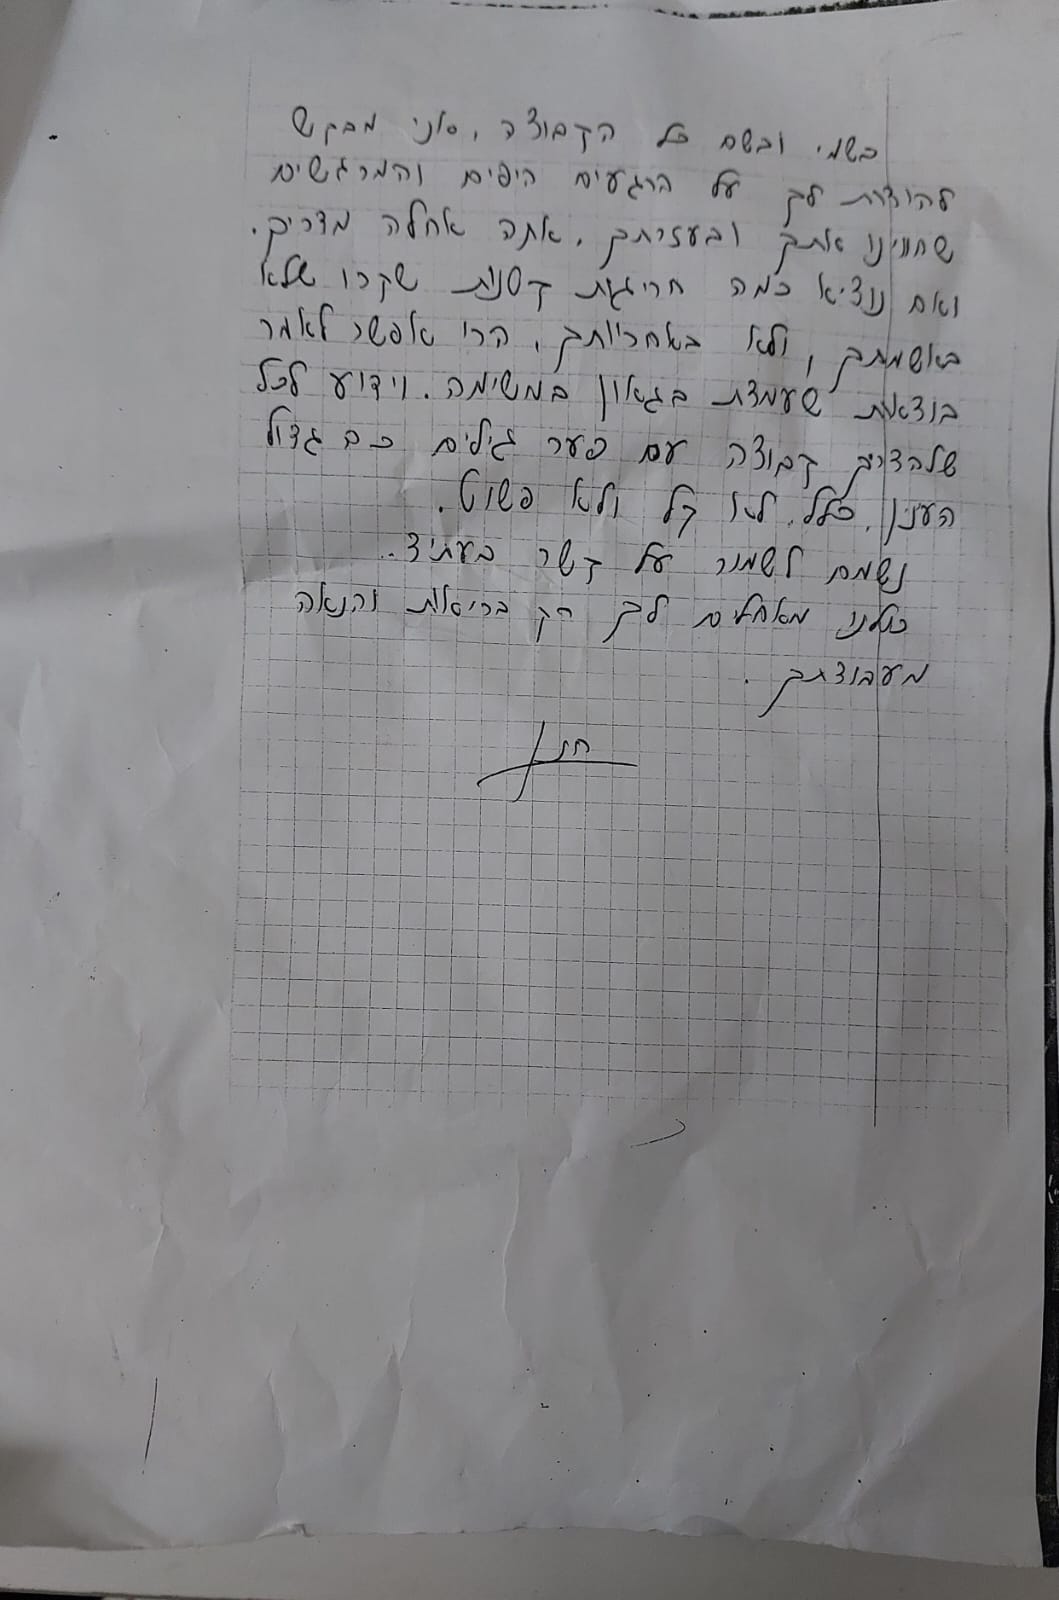 בשמי ובשם כל הקבוצה, אני מבקש
להודות לך על הרגעים היפים והמרגשים
שחווינו אתך ובעזרתך, אתה אחלה מדריך.
ואם נוציא כמה חריגות קטנות שקרו שלא
באשמתך, ולא באחריותך, הרי אפשר לאמר
בודאות שעמדת בגאון במשימה. וידוע לכל
שלהדריך קבוצה עם פער גילים כה גדול
העניין, כלל, לא קל ולא פשוט.
נשמח לשמור על קשר בעתיד..
כולנו מאחלים לך רק בריאות והנאה
מעבודתך.
חנן